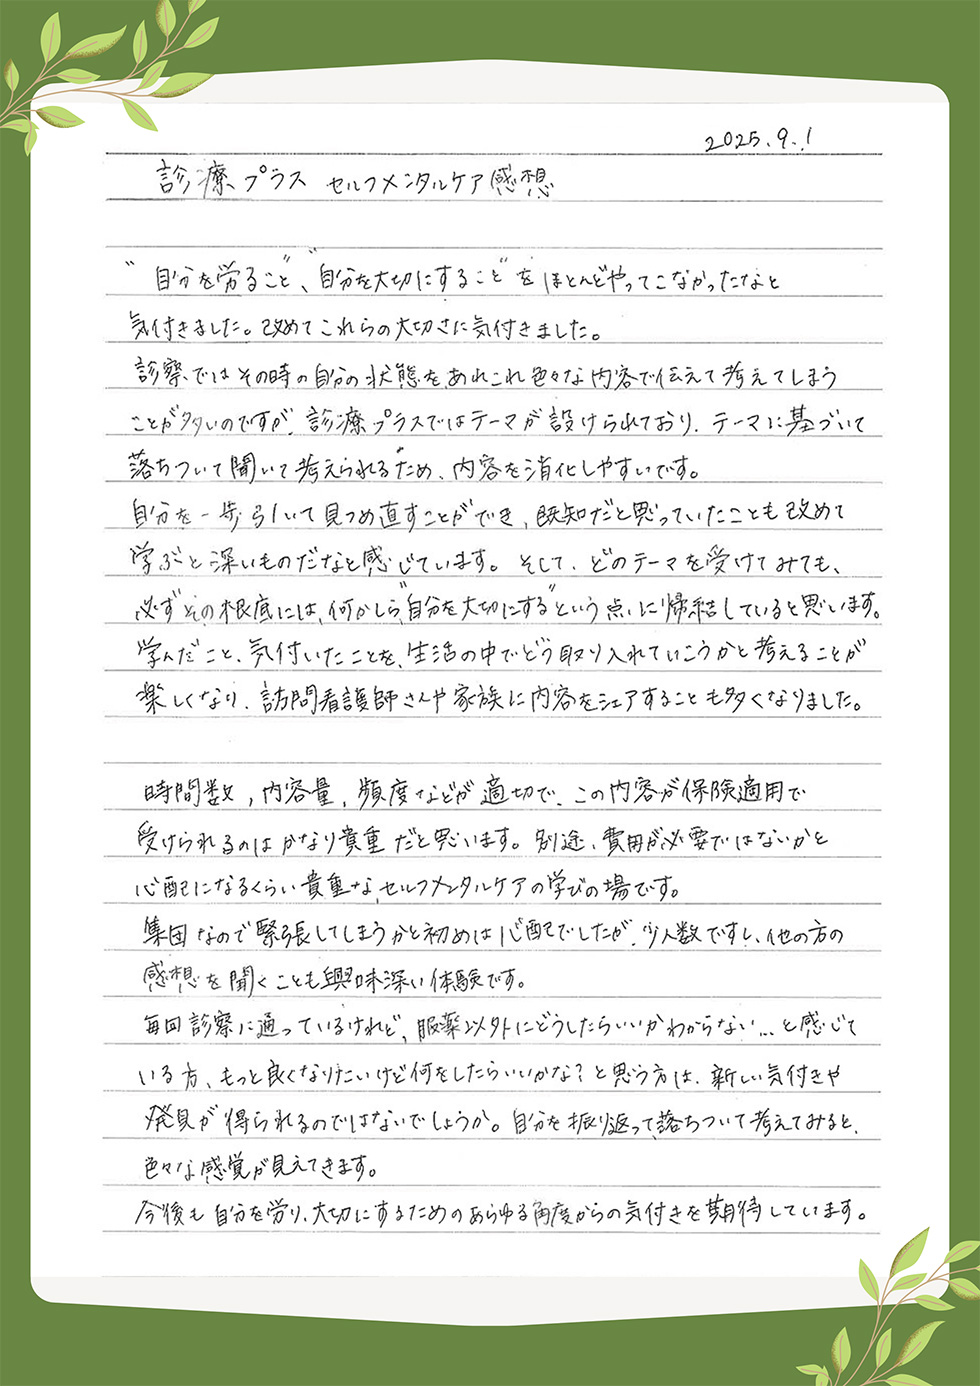 2025.9.1
診療プラス セルフメンタルケア感想
"自分を労ること"、"自分を大切にすること"をほとんどやってこなかったなと
気付きました。改めてこれらの大切さに気付きました。
診察ではその時の自分の状態を、あれこれ色々な内容で伝えて考えてしまう
ことが多いのですが、診療プラスではテーマが設けられており、テーマに基づいて
落ちついて聞いて考えられるため、内容を消化しやすいです。
自分を一歩引いて見つめ直すことができ、既知だと思っていたことも改めて
学ぶと深いものだなと感じています。そして、どのテーマを受けてみても、
必ずその根底には、何かしら"自分を大切にする"という点に帰結していると思います。
学んだこと、気付いたことを、生活の中でどう取り入れていこうかと考えることが
楽しくなり、訪問看護師さんや家族に内容をシェアすることも多くなりました。
時間数、内容量、頻度などが適切で、この内容が保険適用で
受けられるのはかなり貴重だと思います。別途、費用が必要ではないかと
心配になるくらい貴重な、セルフメンタルケアの学びの場です。
集団なので緊張してしまうかと初めは心配でしたが、少人数ですし、他の方の
感想を聞くことも興味深い体験です。
毎回診察に通っているけれど、服薬以外にどうしたらいいかわからない…と感じて
いる方、もっと良くなりたいけど何をしたらいいかな?と思う方は、新しい気付きや
発見が得られるのではないでしょうか。自分を振り返って、落ちついて考えてみると、
色々な感覚が見えてきます。
今後も自分を労り、大切にするためのあらゆる角度からの気付きを期待しています。